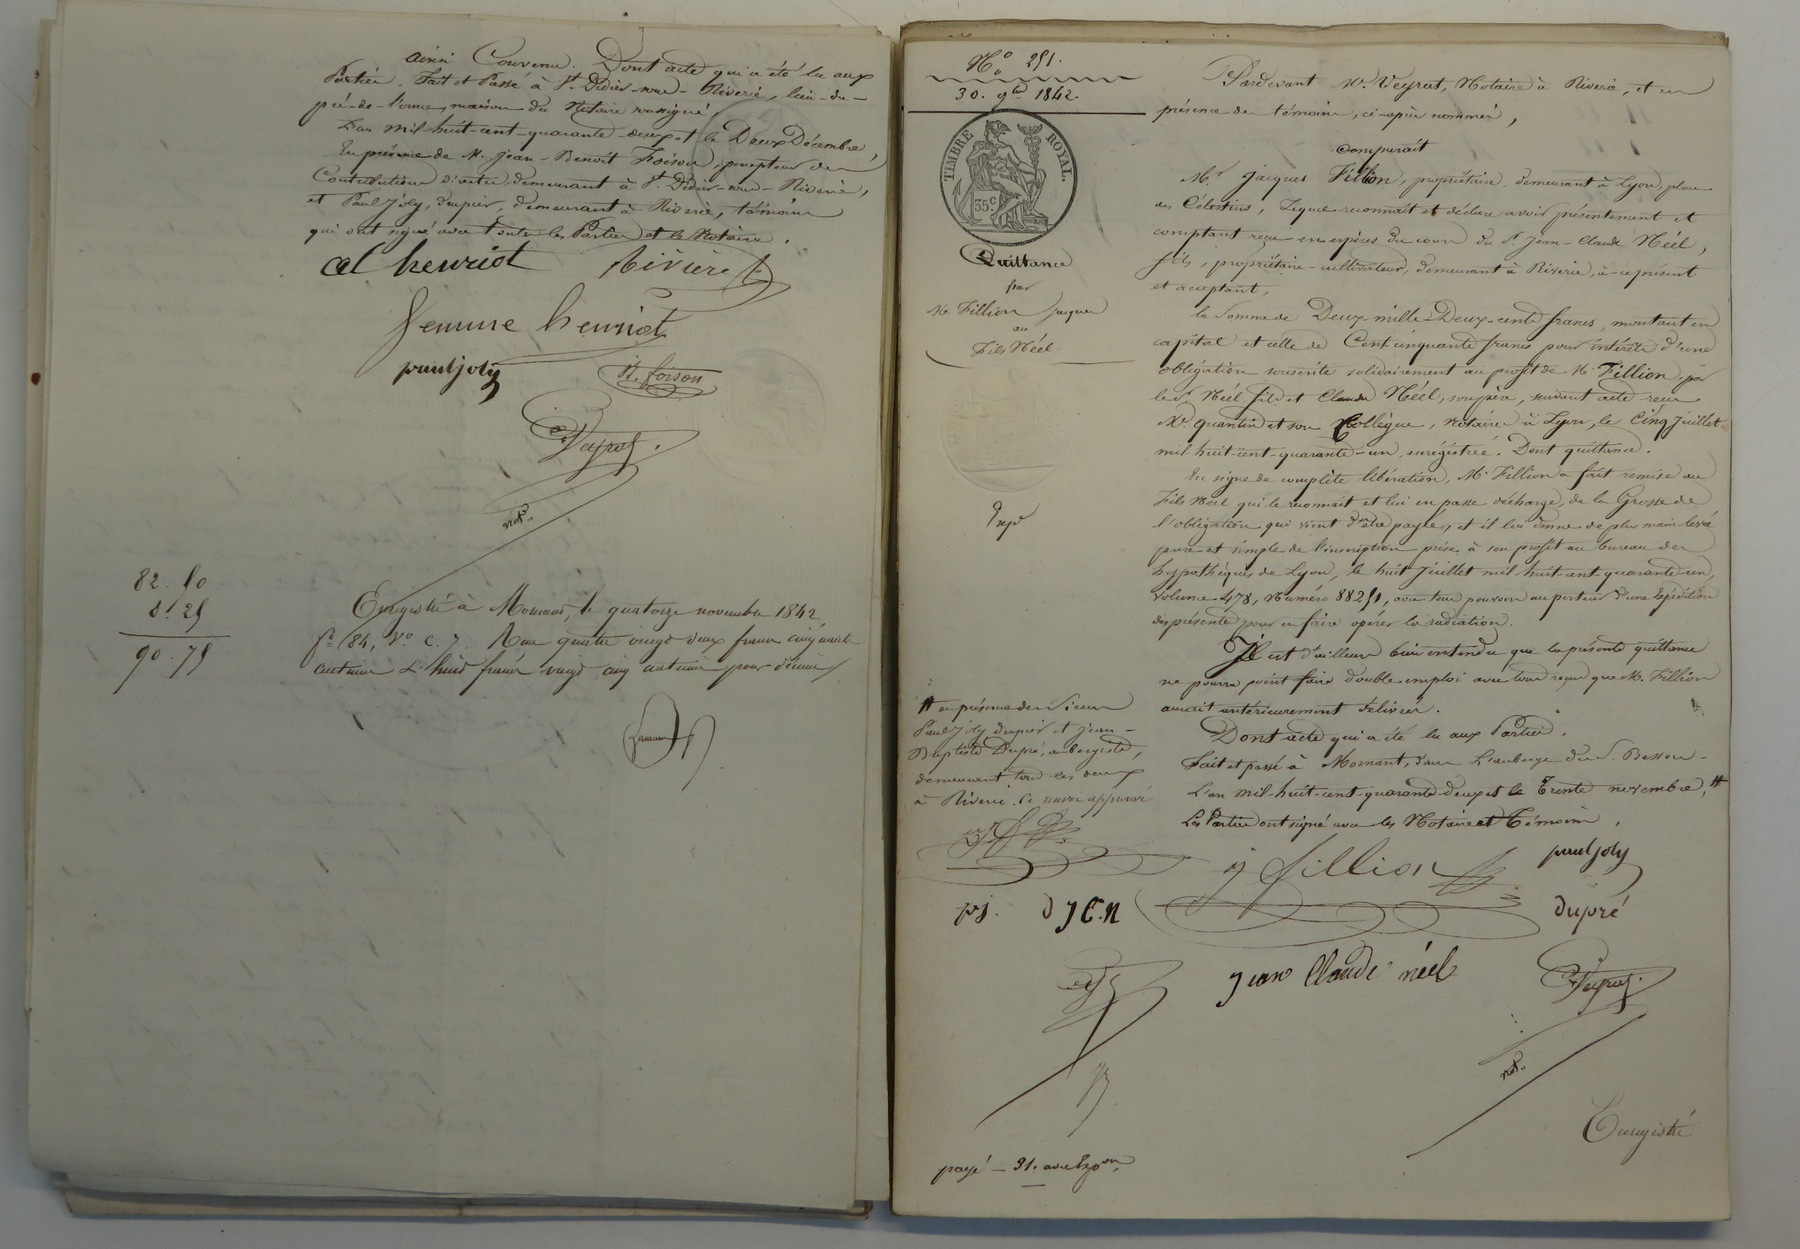 ainsi Convenu. Dont acte qui a été lu aux
Parties. Fait et Passé à St Didier-sous-Riverie, lieu-du-
pré-de-l'orme, maison du Notaire soussigné
L'an mil huit-cent-quarante-deux et le Deux Décembre,
En présence de M. Jean-Benoît Foison, percepteur des
Contributions directes, demeurant à St Didier-sous-Riverie,
et Paul Joly, drapier, demeurant à Riverie, témoins
qui ont signé avec toutes les Parties et le Notaire.
al henriot Rivière
femme henriot
paul joly
B. foison
Veyrat
not.
82. 50
8. 25
90. 75
Enregistré à Mornant, le quatorze novembre 1842,
fo 184, Vo. C. 7. Reçu quatre vingt deux francs cinquante
centimes & huit francs vingt cinq centimes pour dixime
No. 251.
30. 9bre 1842.
TIMBRE ROYAL.
35 c
Quittance
par
M. Fillion Jacques
au
Fils Néel
Expé
Pardevant Me. Veyrat, Notaire à Riverie, et en
présence des témoins, ci-après nommés,
Comparait
Mr. Jacques Fillion, propriétaire, demeurant à Lyon, place
des Célestins, Lequel reconnait et déclare avoir présentement et
comptant reçu en espèces du cours du Sr. Jean-Claude Néel,
fils, propriétaire-cultivateur, demeurant à Riverie, à-ce présent
et acceptant,
la Somme de Deux-mille-Deux-cents francs, montant en
capital et celle de Cent cinquante francs pour intérêts d'une
obligation souscrite solidairement au profit de M. Fillion, par
le Sr. Néel fils et Claude Néel, son père, suivant acte reçu
Me. quantin et son Collègue, Notaires à Lyon, le Cinq Juillet
mil-huit-cent-quarante-un, enrégistrée. Dont quittance.
En signe de complète libération, M. Fillion a fait remise au
Fils Néel qui le reconnait et lui en passe décharge, de la Grosse de
l'obligation qui vient d'être payée, et il lui donne de plus main-levée
pure et simple de l'inscription prise à son profit au bureau des
hypothèques de Lyon, le huit Juillet mil-huit-cent-quarante-un,
volume 478, Numéro 88251, avec tous pouvoirs au porteur d'une Expédition
des présentes pour en faire opérer la radiation.
Il est d'ailleurs bien entendu que la présente quittance
ne pourra point faire double-emploi avec tous reçus que M. Fillion
aurait antérieurement délivrés.
Dont acte qui a été lu aux Parties.
Fait et passé à Mornant, dans L'auberge du S. Besson-
L'an mil-huit-cent-quarante-deux et le Trente novembre, #
Les Parties ont signé avec les Notaire et Témoins.
# en présence des Sieurs
Paul Joly drapier et Jean-
Baptiste Dupré, aubergiste,
demeurant tous les deux
à Riverie. Ce renvoi approuvé
j fillion
paul joly
p j. d J C. n
dupré
jean Claude néel
Veyrat
not.
Enregistré
payé - 31. avec Expon.